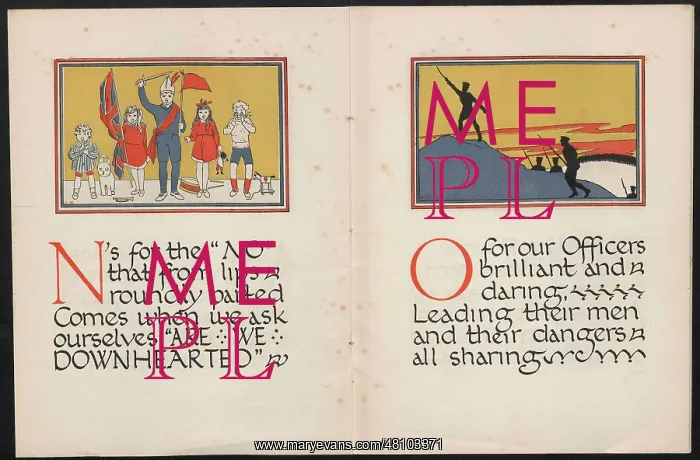 N's for the "NO"
that from lips
roundly parted
Comes when we ask
ourselves "ARE WE
DOWNHEARTED"
ME
PL
O for our Officers
brilliant and
daring,
Leading their men
and their dangers
all sharing
ME
PL
www.maryevans.com/48103371